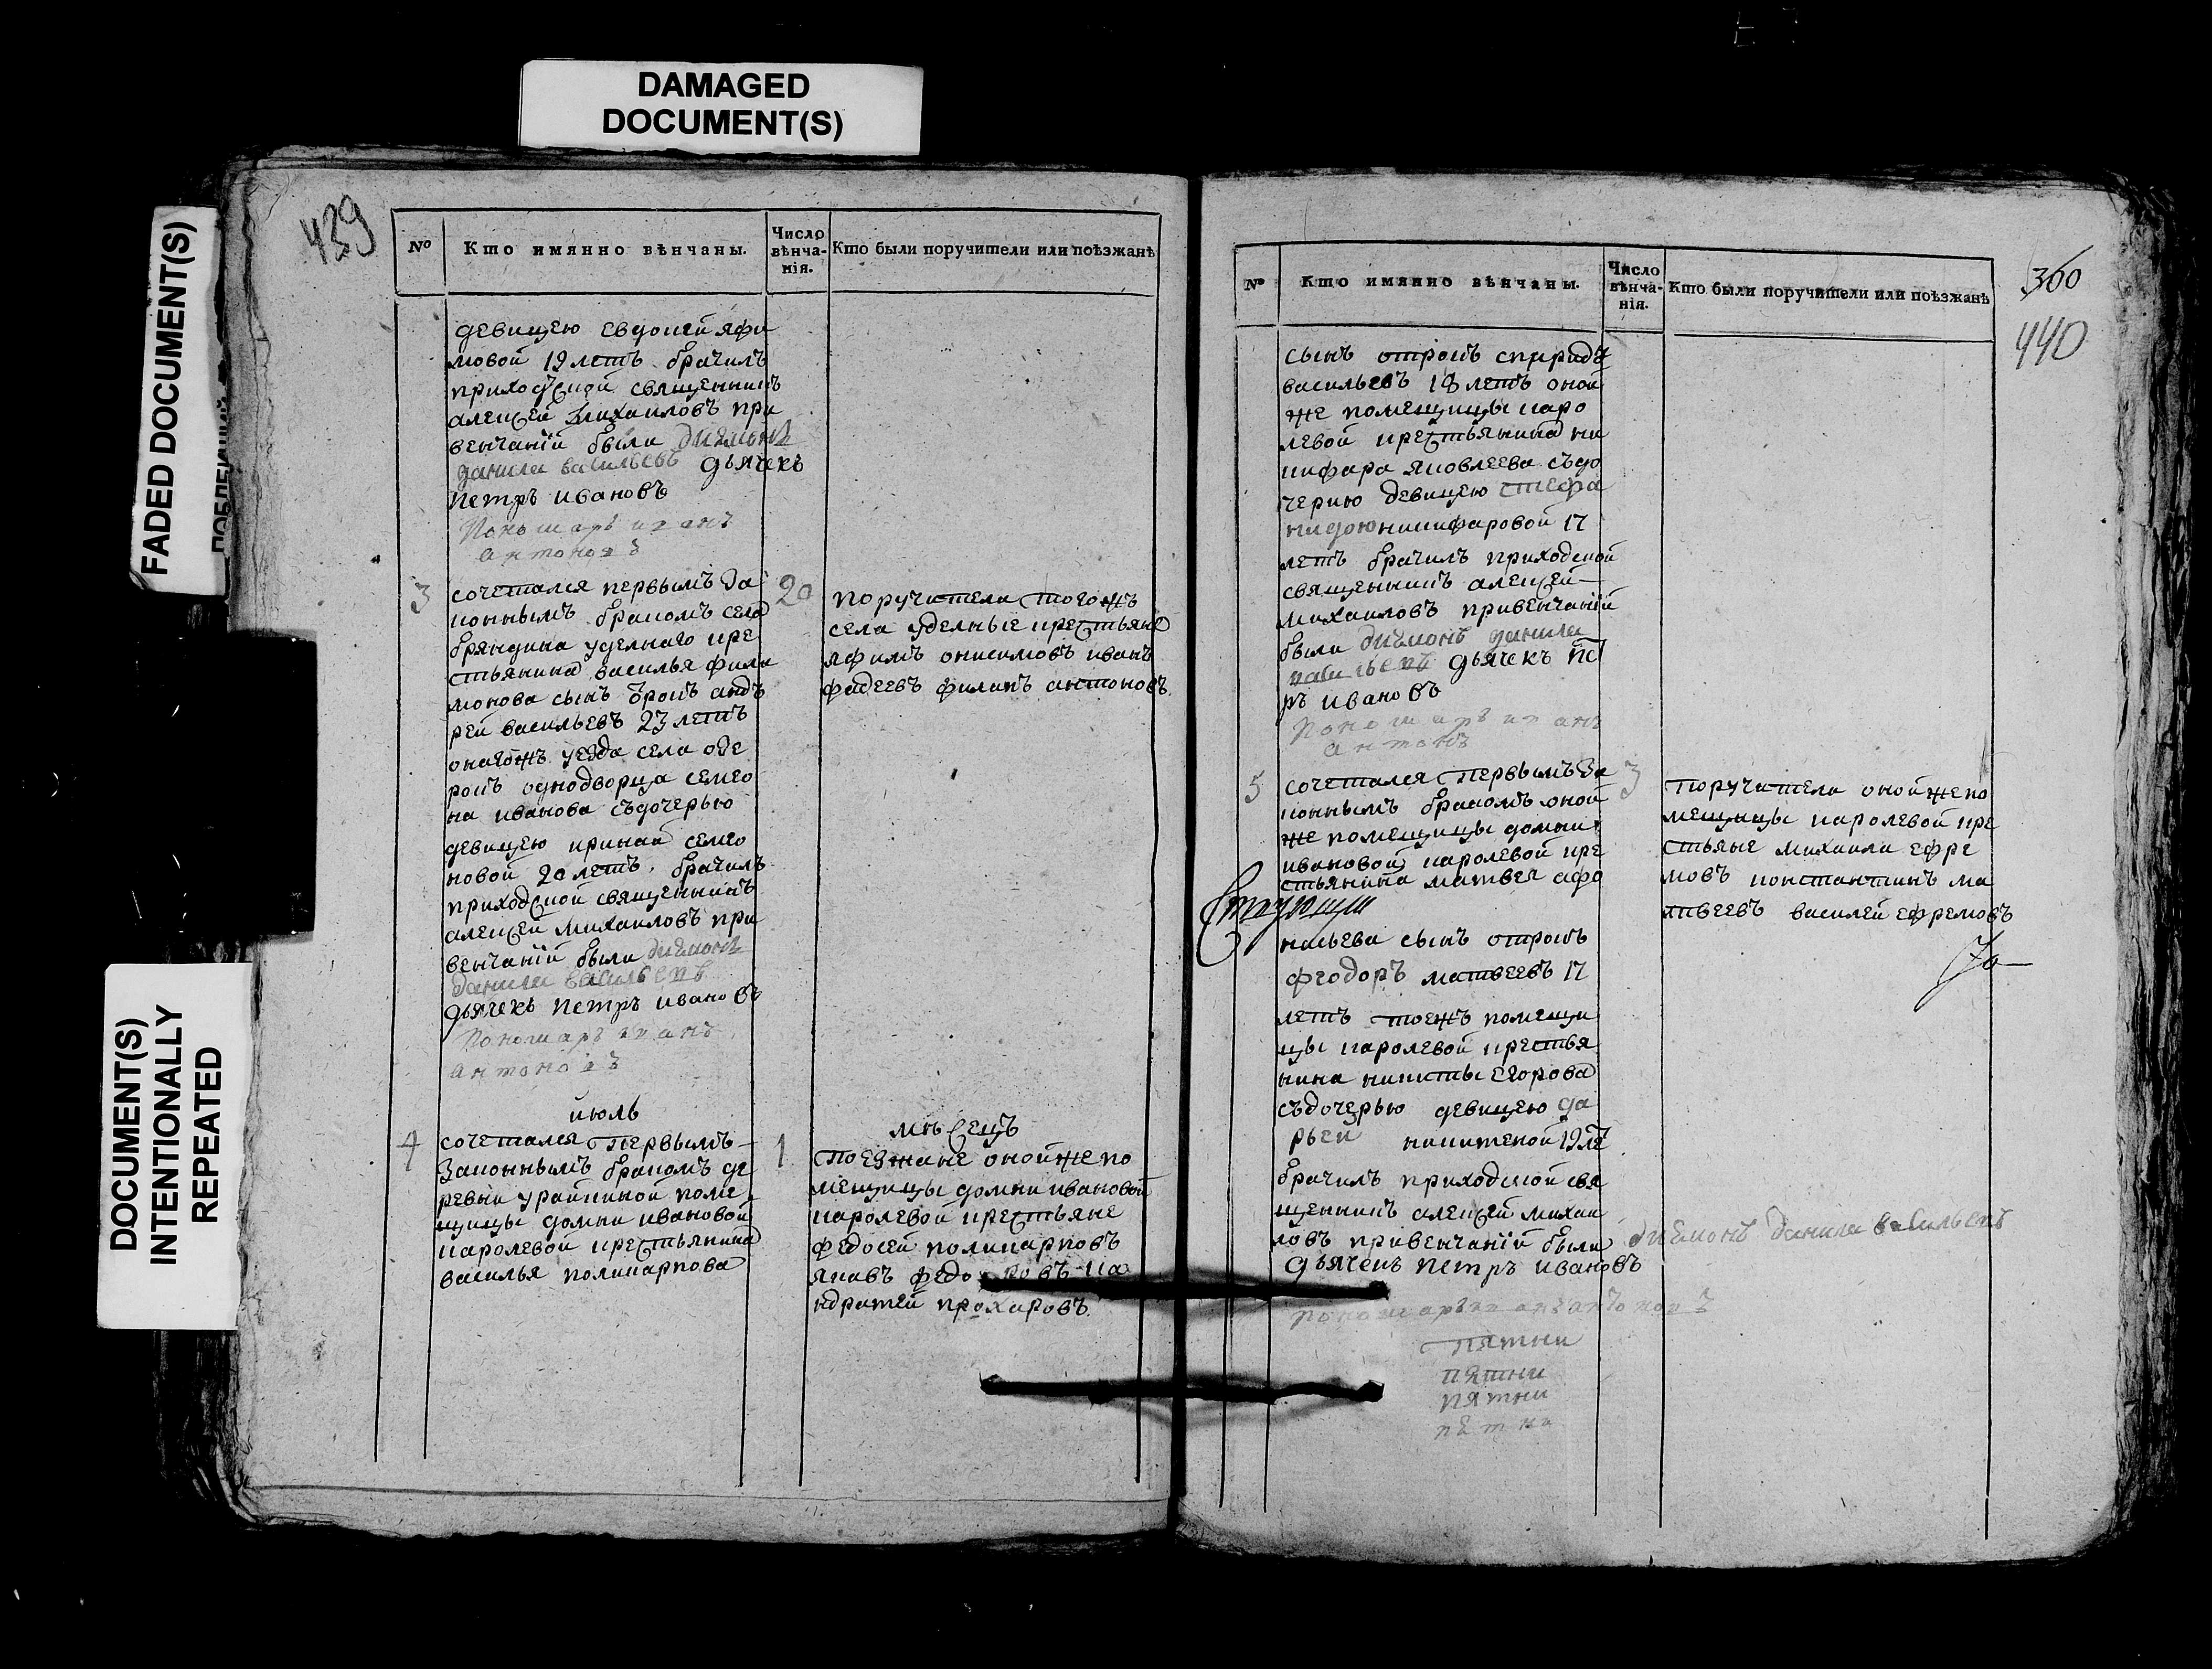 DAMAGED
DOCUMENT(S)
FADED DOCUMENT(S)
DOCUMENT(S)
INTENTIONALLY
REPEATED
439
№
Кто имянно вѣнчаны.
Число
вѣнча-
нія.
Кто были поручители или поѣзжанѣ
девицею евдокей яфи
мовой 19 летъ брачилъ
приходской священникъ
алексей михаиловъ при
венчаніи были диаконъ
данила васильевъ дьячекъ
петръ ивановъ
Пономарь иванъ
антоновъ
3
сочетался первымъ за
коннымъ бракомъ села
бряндина уделнаго кре
стьянина василья фили
монова сынъ отрокъ анд
рей васильевъ 23 летъ
онагожъ уезда села
однодворца семео
на иванова съдочерью
девицею семео
новой 20 летъ. брачилъ
приходской священникъ
алексей михаиловъ при
венчаніи были диаконъ
данила васильевъ
дьячекъ петръ ивановъ
Пономарь иванъ
антоновъ
20
поручители тогожъ
села уделные крестьяне
яфимъ онисимовъ иванъ
фадеевъ филипъ антоновъ
июль
мѣсецъ
4
сочетался первымъ
законнымъ бракомъ де
ревни урайкиной поме
щицы домны ивановой
каролевой крестьянина
василья поликарпова
1
поезжане оной же по
мещицы домны ивановой
каролевой крестьяне
федосей поликарповъ
яковъ федоровъ ка
ндратей прохаровъ.
360
440
№
Кто имянно вѣнчаны.
Число
вѣнча-
нія.
Кто были поручители или поѣзжанѣ
сынъ отрокъ спиридъ
васильевъ 18 летъ оной
же помещицы каро
левой крестьянина ни
кифара яковлеева съдо
черию девицею стефа
нидою никифаровой 17
летъ брачилъ приходской
священникъ алексей
михаиловъ привенчаніи
были диаконъ данила
васильевъ дьячекъ пет
ръ ивановъ
Пономарь иванъ
антонъ
5
сочетался первымъ за
коннымъ бракомъ оной
же помещицы домны
ивановой каролевой кре
стьянина матвея афо
насьева сынъ отрокъ
феодоръ матвеевъ 17
летъ тоежъ помещи
цы каролевой крестья
нина никиты егорова
съдочерью девицею да
рьей никитеной 19 ле
брачилъ приходской свя
щенникъ алексей михаи
ловъ привенчаніи были диаконъ данила васильевъ
дьячекъ петръ ивановъ
пономарь иванъ антоновъ
пятни
пятни
пятни
пятни
3
поручители оной же по
мещицы каролевой кре
стьяне михаила ефре
мовъ константинъ ма
твеевъ василей ефремовъ